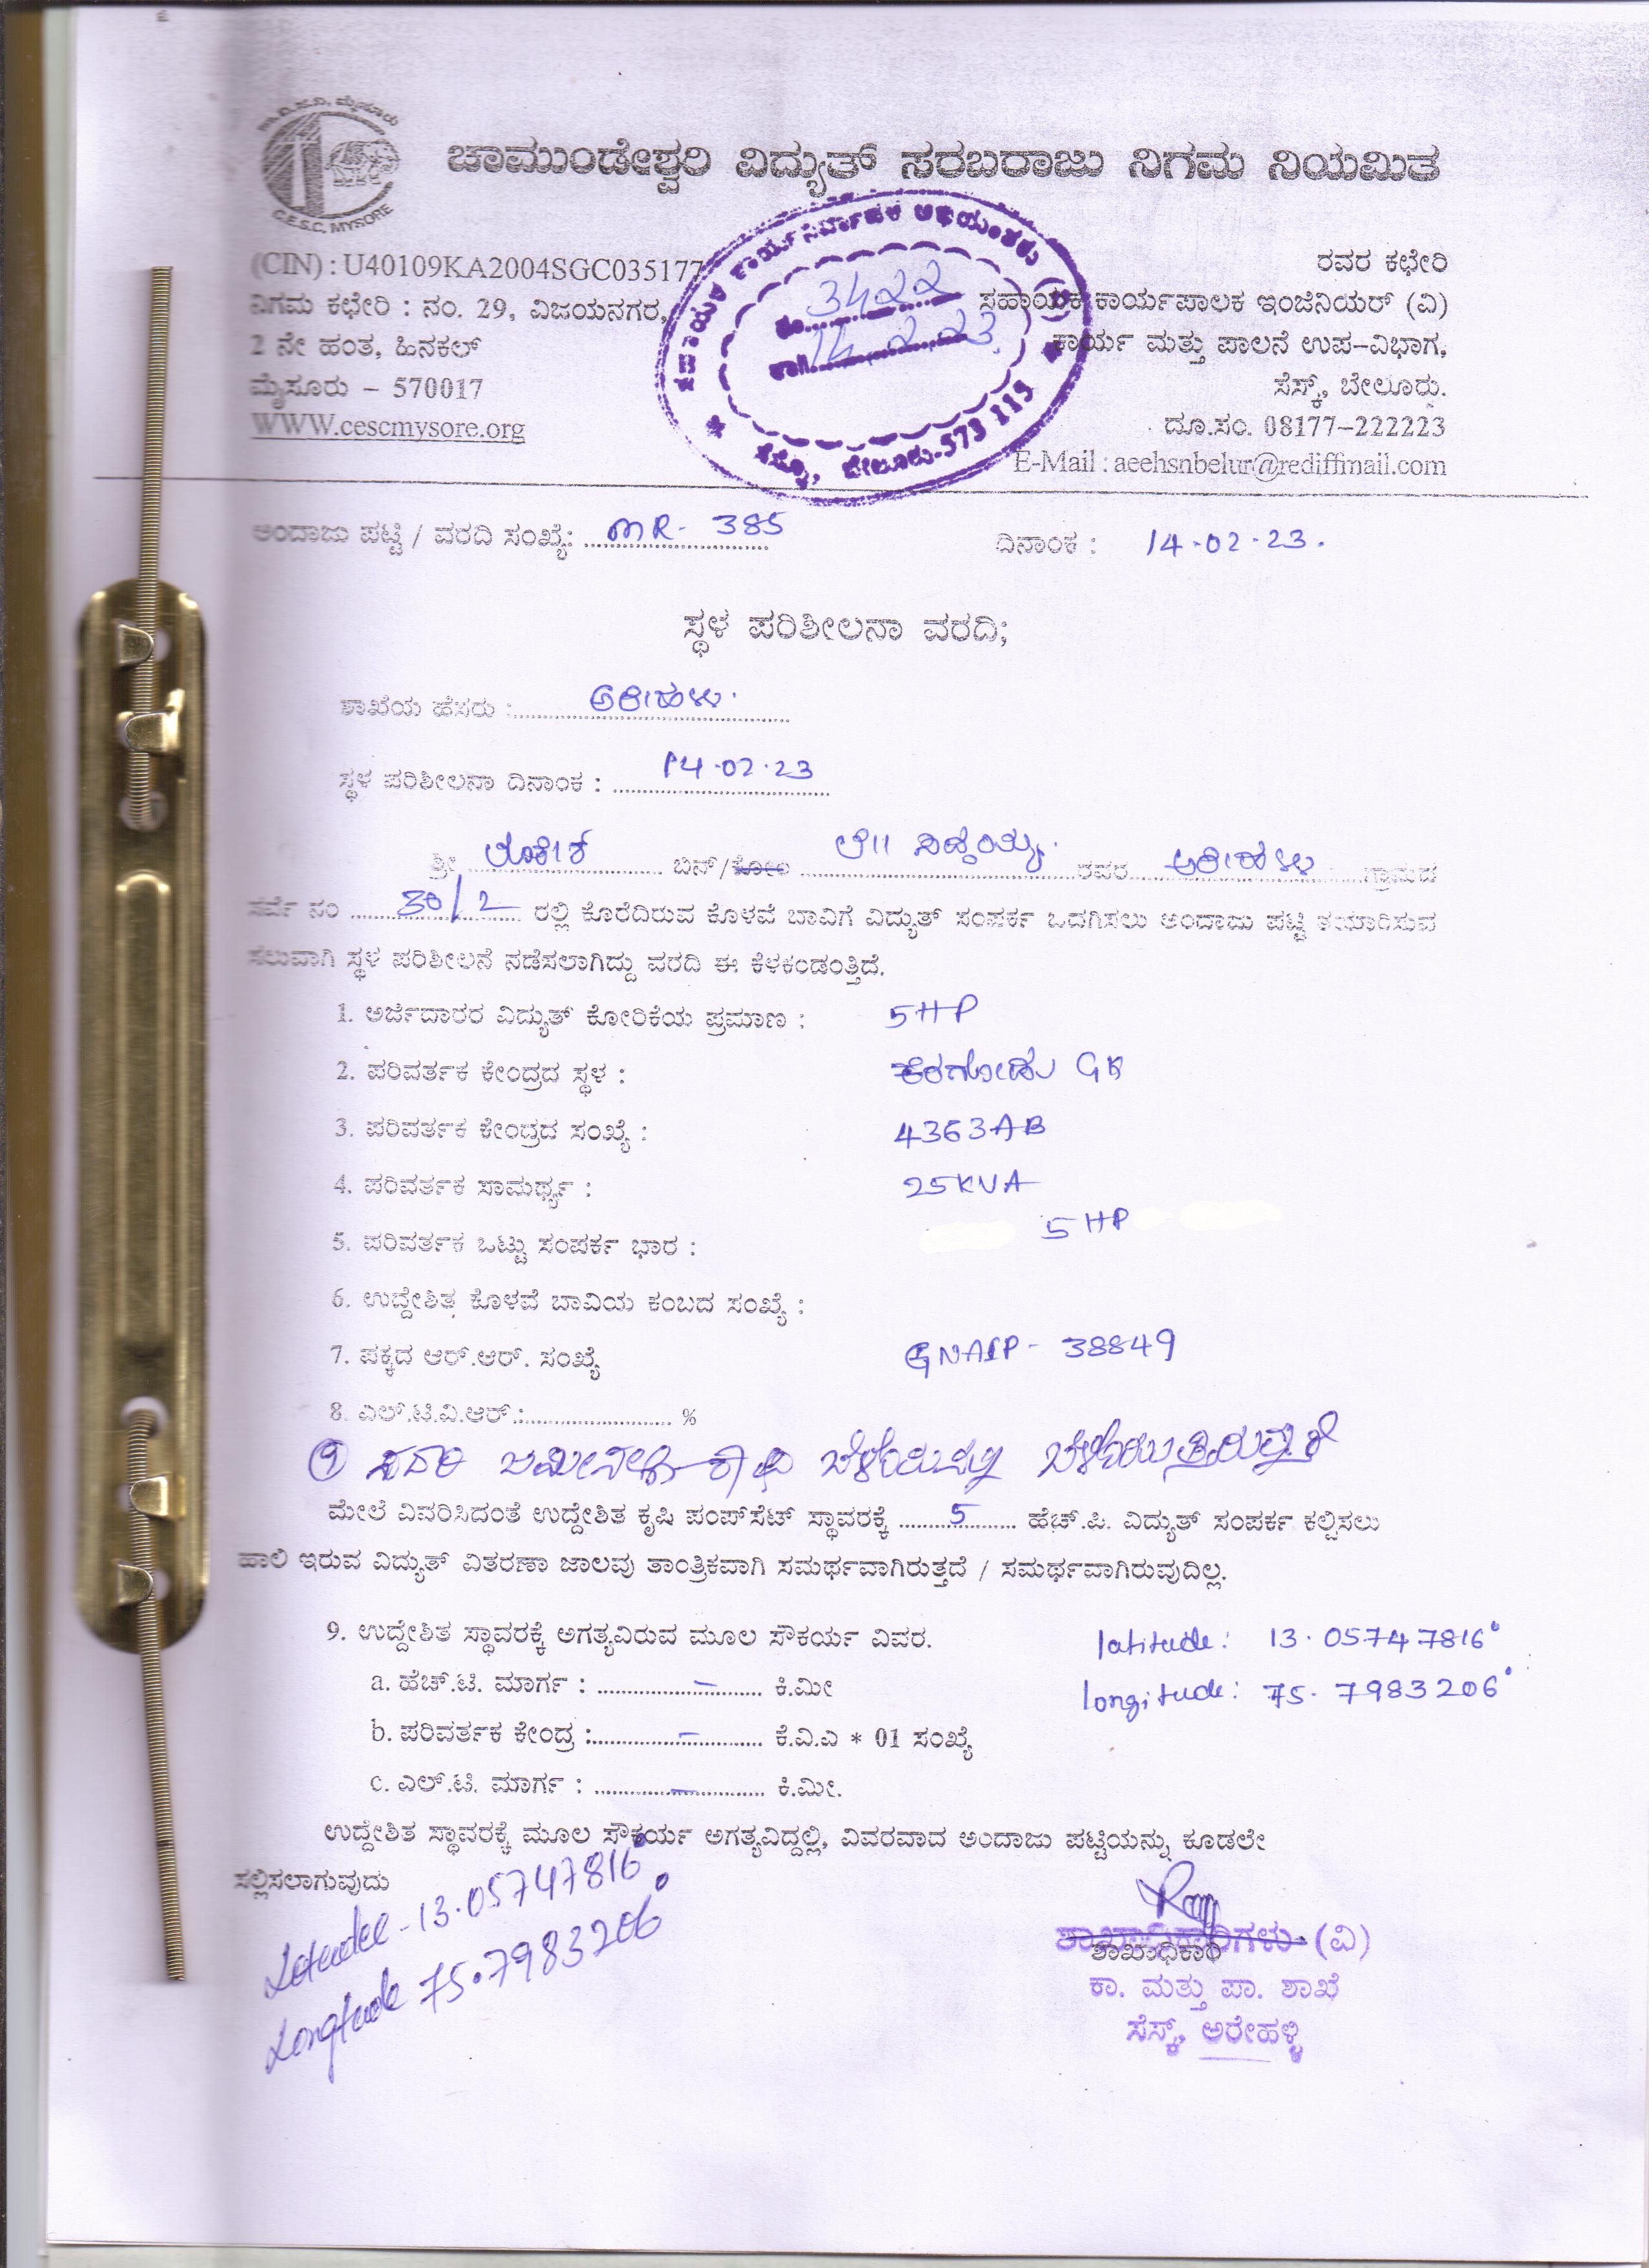 ಚಾ.ವಿ.ಸ.ನಿ, ಮೈಸೂರು
C.E.S.C. MYSORE
ಚಾಮುಂಡೇಶ್ವರಿ ವಿದ್ಯುತ್ ಸರಬರಾಜು ನಿಗಮ ನಿಯಮಿತ
(CIN) : U40109KA2004SGC035177
ನಿಗಮ ಕಛೇರಿ : ನಂ. 29, ವಿಜಯನಗರ,
2 ನೇ ಹಂತ, ಹಿನಕಲ್
ಮೈಸೂರು – 570017
WWW.cescmysore.org
ಸಹಾಯಕ ಕಾರ್ಯನಿರ್ವಾಹಕ ಅಭಿಯಂತರರು (ವಿ)
ಸಂ. 3422
ದಿನಾಂಕ 14.2.23
ಸೆಸ್ಕ್, ಬೇಲೂರು-573 115
ರವರ ಕಛೇರಿ
ಸಹಾಯಕ ಕಾರ್ಯಪಾಲಕ ಇಂಜಿನಿಯರ್ (ವಿ)
ಕಾರ್ಯ ಮತ್ತು ಪಾಲನೆ ಉಪ-ವಿಭಾಗ,
ಸೆಸ್ಕ್, ಬೇಲೂರು.
ದೂ.ಸಂ. 08177–222223
E-Mail : aeehsnbelur@rediffmail.com
ಅಂದಾಜು ಪಟ್ಟಿ / ವರದಿ ಸಂಖ್ಯೆ: MR - 385 ದಿನಾಂಕ : 14.02.23.
ಸ್ಥಳ ಪರಿಶೀಲನಾ ವರದಿ;
ಶಾಖೆಯ ಹೆಸರು : ಅರೇಹಳ್ಳಿ.
ಸ್ಥಳ ಪರಿಶೀಲನಾ ದಿನಾಂಕ : 14.02.23
ಶ್ರೀ ಲೋಕೇಶ್ ಬಿನ್/ಕೋಂ ಲೇ|| ಸಿದ್ದಯ್ಯ. ರವರ ಅರೇಹಳ್ಳಿ ಗ್ರಾಮದ
ಸರ್ವೆ ನಂ 30/2 ರಲ್ಲಿ ಕೊರೆದಿರುವ ಕೊಳವೆ ಬಾವಿಗೆ ವಿದ್ಯುತ್ ಸಂಪರ್ಕ ಒದಗಿಸಲು ಅಂದಾಜು ಪಟ್ಟಿ ತಯಾರಿಸುವ
ಸಲುವಾಗಿ ಸ್ಥಳ ಪರಿಶೀಲನೆ ನಡೆಸಲಾಗಿದ್ದು ವರದಿ ಈ ಕೆಳಕಂಡಂತ್ತಿದೆ.
1. ಅರ್ಜಿದಾರರ ವಿದ್ಯುತ್ ಕೋರಿಕೆಯ ಪ್ರಮಾಣ : 5HP
2. ಪರಿವರ್ತಕ ಕೇಂದ್ರದ ಸ್ಥಳ : ಕೆರಗೋಡು GK
3. ಪರಿವರ್ತಕ ಕೇಂದ್ರದ ಸಂಖ್ಯೆ : 4363AB
4. ಪರಿವರ್ತಕ ಸಾಮರ್ಥ್ಯ : 25KVA
5. ಪರಿವರ್ತಕ ಒಟ್ಟು ಸಂಪರ್ಕ ಭಾರ : 5HP
6. ಉದ್ದೇಶಿತ ಕೊಳವೆ ಬಾವಿಯ ಕಂಬದ ಸಂಖ್ಯೆ :
7. ಪಕ್ಕದ ಆರ್.ಆರ್. ಸಂಖ್ಯೆ GNAIP - 38849
8. ಎಲ್.ಟಿ.ವಿ.ಆರ್.: %
9 ಸದರಿ ಜಮೀನಿನಲ್ಲಿ ಕಾಫಿ ಬೆಳೆಯನ್ನು ಬೆಳೆಯುತ್ತಿರುತ್ತಾರೆ
ಮೇಲೆ ವಿವರಿಸಿದಂತೆ ಉದ್ದೇಶಿತ ಕೃಷಿ ಪಂಪ್‌ಸೆಟ್ ಸ್ಥಾವರಕ್ಕೆ 5 ಹೆಚ್.ಪಿ. ವಿದ್ಯುತ್ ಸಂಪರ್ಕ ಕಲ್ಪಿಸಲು
ಹಾಲಿ ಇರುವ ವಿದ್ಯುತ್ ವಿತರಣಾ ಜಾಲವು ತಾಂತ್ರಿಕವಾಗಿ ಸಮರ್ಥವಾಗಿರುತ್ತದೆ / ಸಮರ್ಥವಾಗಿರುವುದಿಲ್ಲ.
9. ಉದ್ದೇಶಿತ ಸ್ಥಾವರಕ್ಕೆ ಅಗತ್ಯವಿರುವ ಮೂಲ ಸೌಕರ್ಯ ವಿವರ. latitude: 13.05747816°
a. ಹೆಚ್.ಟಿ. ಮಾರ್ಗ : – ಕಿ.ಮೀ longitude: 75.7983206°
b. ಪರಿವರ್ತಕ ಕೇಂದ್ರ : – ಕೆ.ವಿ.ಎ * 01 ಸಂಖ್ಯೆ
c. ಎಲ್.ಟಿ. ಮಾರ್ಗ : – ಕಿ.ಮೀ.
ಉದ್ದೇಶಿತ ಸ್ಥಾವರಕ್ಕೆ ಮೂಲ ಸೌಕರ್ಯ ಅಗತ್ಯವಿದ್ದಲ್ಲಿ, ವಿವರವಾದ ಅಂದಾಜು ಪಟ್ಟಿಯನ್ನು ಕೂಡಲೇ
ಸಲ್ಲಿಸಲಾಗುವುದು
13.05747816°
75.7983206°
ಶಾಖಾಧಿಕಾರಿಗಳು (ವಿ)
ಶಾಖಾಧಿಕಾರಿ
ಕಾ. ಮತ್ತು ಪಾ. ಶಾಖೆ
ಸೆಸ್ಕ್, ಅರೇಹಳ್ಳಿ